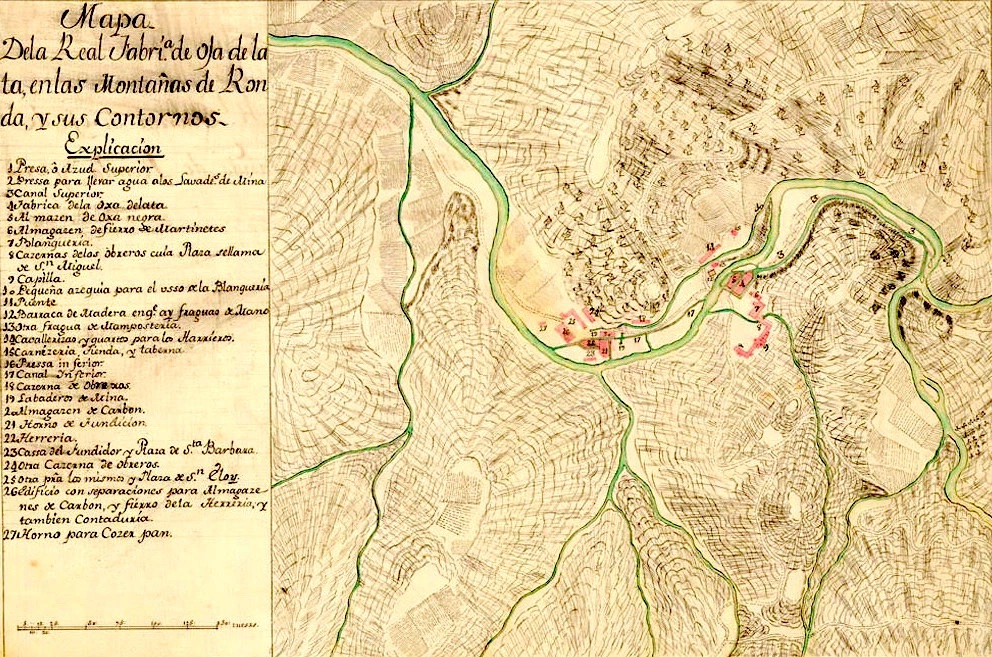 Mapa
Dela Real Fabri.ª de Oja de la
ta, en las Montañas de Ron
da, y sus Contornos
Explicacion
1 Presa, ô Azud Superior
2 Pressa para llevar agua alos Lavade.s de Mina
3 Canal Superior
4 Fabrica dela Oxa delata
5 Al mazen de Oxa negra.
6 Almagazen de fierro de Martinetes
7 Blanqueria.
8 Cazernas delos obreros cuia Plaza sellama
de S.n Miguel.
9 Capilla.
10 Pequeña azequia para el usso de la Blanqueria
11 Puente
12 Barraca de Madera en q.e ay fraguas de Mano
13 Otra fragua de Mamposteria.
14 Cavallerizas y quartos para los Harrieros.
15 Carnizeria, tienda, y taberna
16 Pressa inferior
17 Canal Inferior.
18 Cazerna de Obreros.
19 Labaderos de Mina.
20 Almagazen de Carbon.
21 Horno de Fundicion.
22 Herreria.
23 Cassa del Fundidor y Plaza de S.ta Barbara.
24 Otra Cazerna de Obreros.
25 Otra p.ra los mismos y Plaza de S.n Eloy.
26 Edificio con separaciones para Almagaze-
nes de Carbon, y fierro dela Herreria, y
tambien Contaduria.
27 Horno para Cozer pan.